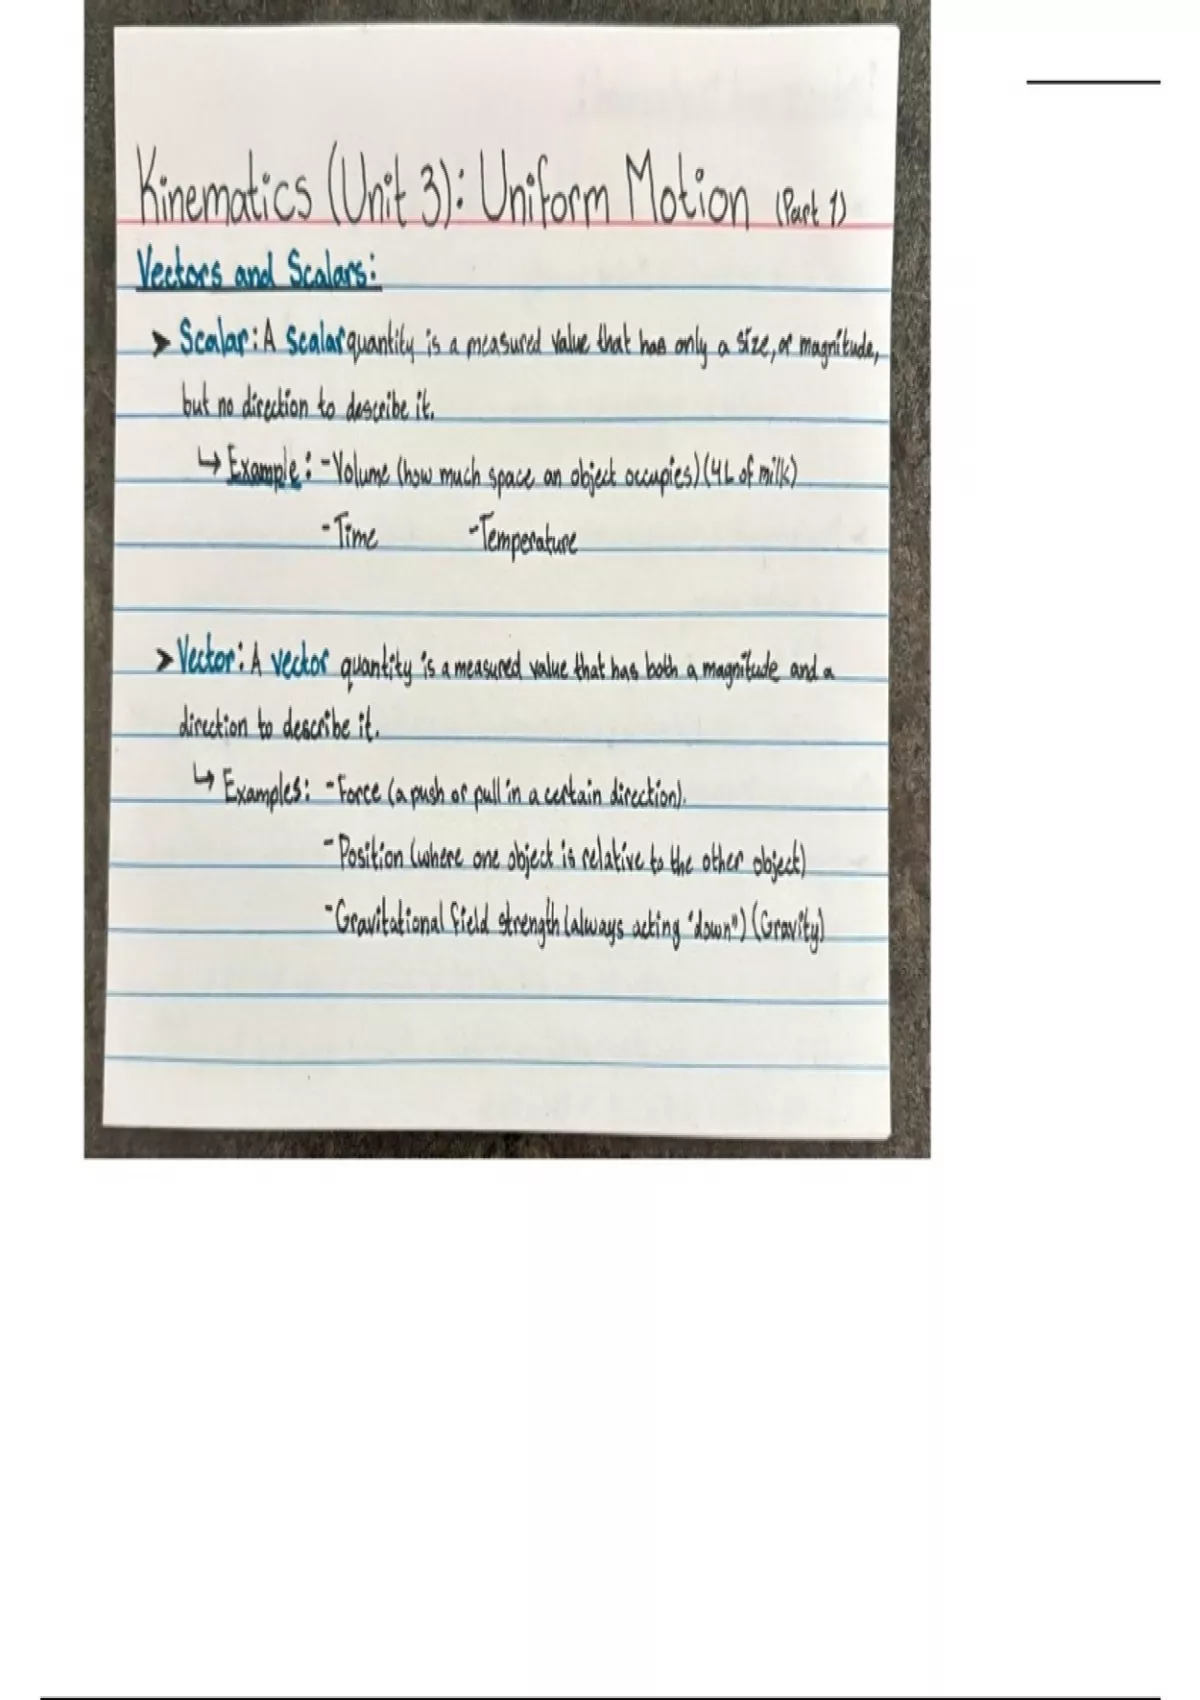 Kinematics (Unit 3): Uniform Motion (Part 1)
Vectors and Scalars:
➤ Scalar: A scalar quantity is a measured value that has only a size, or magnitude,
but no direction to describe it.
↳ Example: - Volume (how much space an object occupies) (4L of milk)
- Time - Temperature
➤ Vector: A vector quantity is a measured value that has both a magnitude and a
direction to describe it.
↳ Examples: - Force (a push or pull in a certain direction).
- Position (where one object is relative to the other object)
- Gravitational field strength (always acting "down") (Gravity)